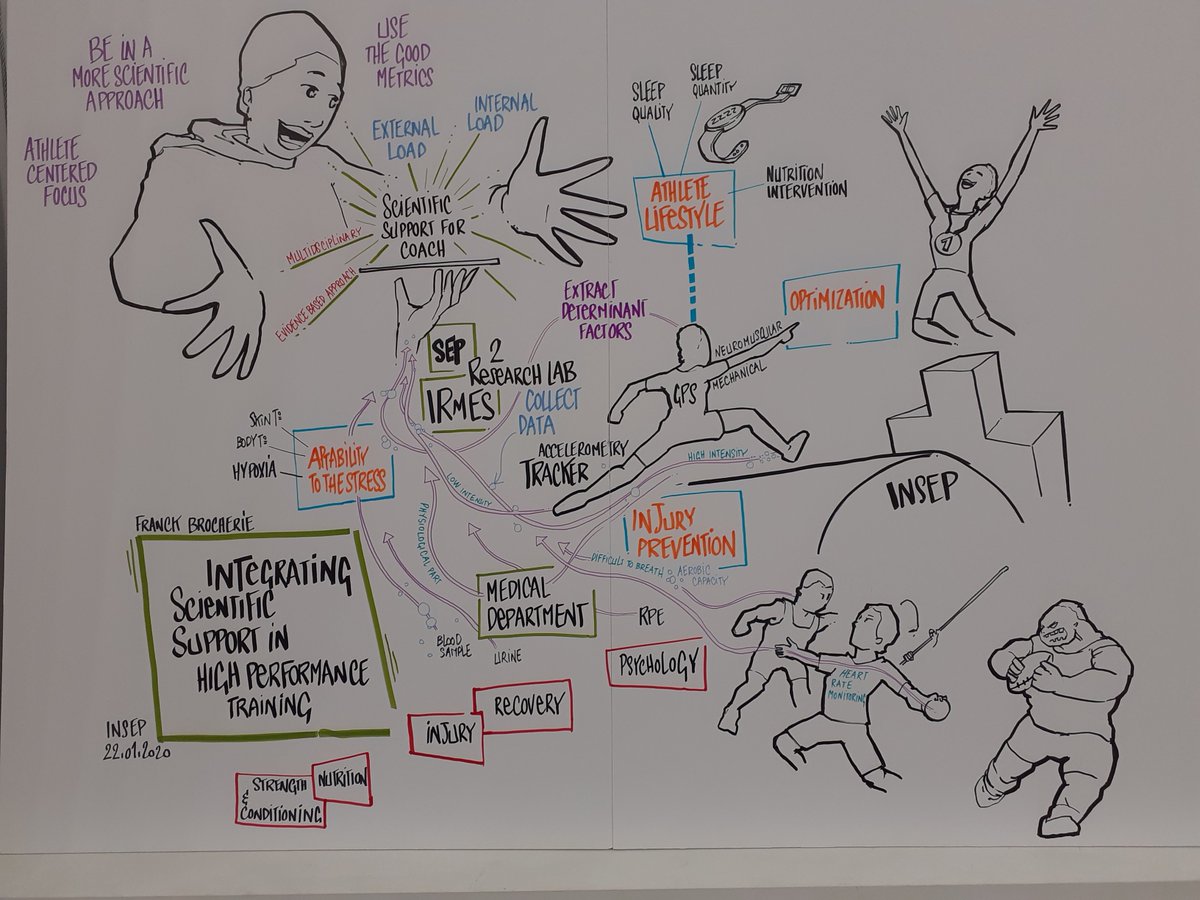 BE IN A
MORE SCIENTIFIC
APPROACH
USE
THE GOOD
METRICS
ATHLETE
CENTERED
FOCUS
EXTERNAL
LOAD
INTERNAL
LOAD
SCIENTIFIC
SUPPORT FOR
COACH
MULTIDISCIPLINARY
EVIDENCE BASED APPROACH
SLEEP
QUALITY
SLEEP
QUANTITY
ZZZZ
ATHLETE
LIFESTYLE
NUTRITION
INTERVENTION
1
EXTRACT
DETERMINANT
FACTORS
OPTIMIZATION
NEUROMUSCULAR
MECHANICAL
GPS
SEP
2
RESEARCH LAB
IRMES
COLLECT
DATA
ACCELEROMETRY
TRACKER
HIGH INTENSITY
LOW INTENSITY
INSEP
SKIN T°
BODY T°
HYPOXIA
APTABILITY
TO THE STRESS
PHYSIOLOGICAL PART
INJURY
PREVENTION
DIFFICULT TO BREATH
AEROBIC
CAPACITY
FRANCK BROCHERIE
INTEGRATING
SCIENTIFIC
SUPPORT IN
HIGH PERFORMANCE
TRAINING
INSEP
22.01.2020
MEDICAL
DEPARTMENT
RPE
BLOOD
SAMPLE
URINE
PSYCHOLOGY
HEART
RATE
MONITORING
RECOVERY
INJURY
NUTRITION
STRENGTH
&
CONDITIONING